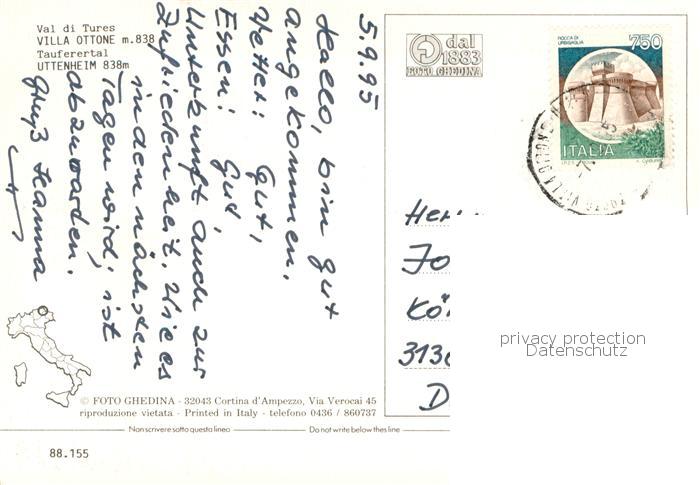 Val di Tures
VILLA OTTONE m.838
Tauferertal
UTTENHEIM 838m
5.9.95
Hallo, bin gut
angekommen.
Wetter: gut,
Essen: gut,
Unterkunft auch zur
Zufriedenheit. Wie es
in den nächsten
Tagen wird, ist
abzuwarden.
Gruß Hanna
dal
1883
FOTO GHEDINA
ROCCA DI
URBISAGLIA
750
ITALIA
Her
Jo
Kö
313
D
privacy protection
Datenschutz
© FOTO GHEDINA - 32043 Cortina d'Ampezzo, Via Verocai 45
riproduzione vietata - Printed in Italy - telefono 0436 / 860737
Non scrivere sotto questa linea
Do not write below thes line
88.155